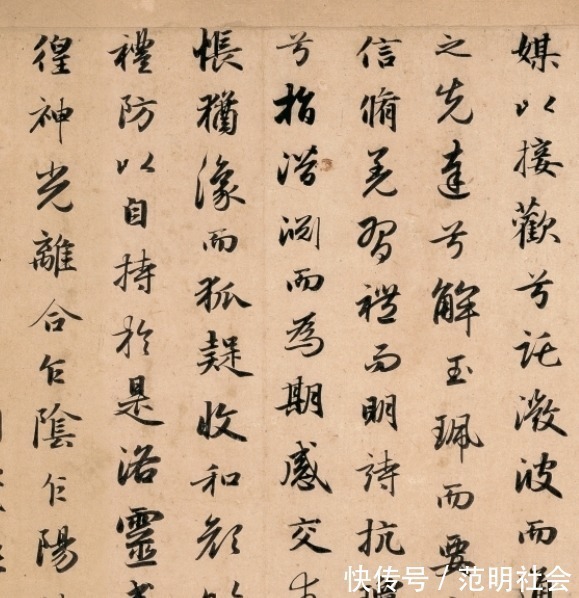 媒以接歡兮託微波而
之先達兮解玉珮而要
信脩羌習禮而明詩抗
兮指潛淵而為期感交
悵猶豫而狐疑收和顏
禮防以自持於是洛靈
徨神光離合乍陰乍陽
快传号 / 范明社会